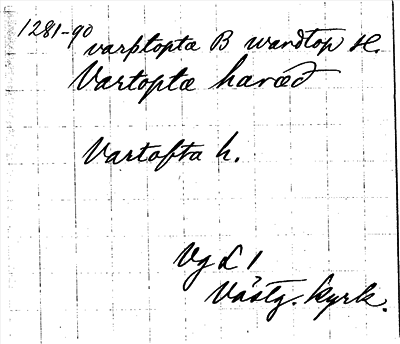 1281-90
varþtoptæ B wardtop H.
Vartoptæ hæræð
Vartofta h.
Vg L 1
Västg. kyrk.